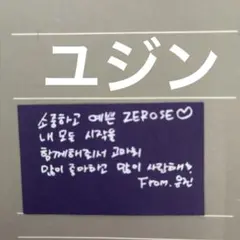 ユジン
소중하고 예쁜 ZEROSE♡
내 모든 시작을
함께해줘서 고마워
많이 좋아하고 많이 사랑해?
From. 유진